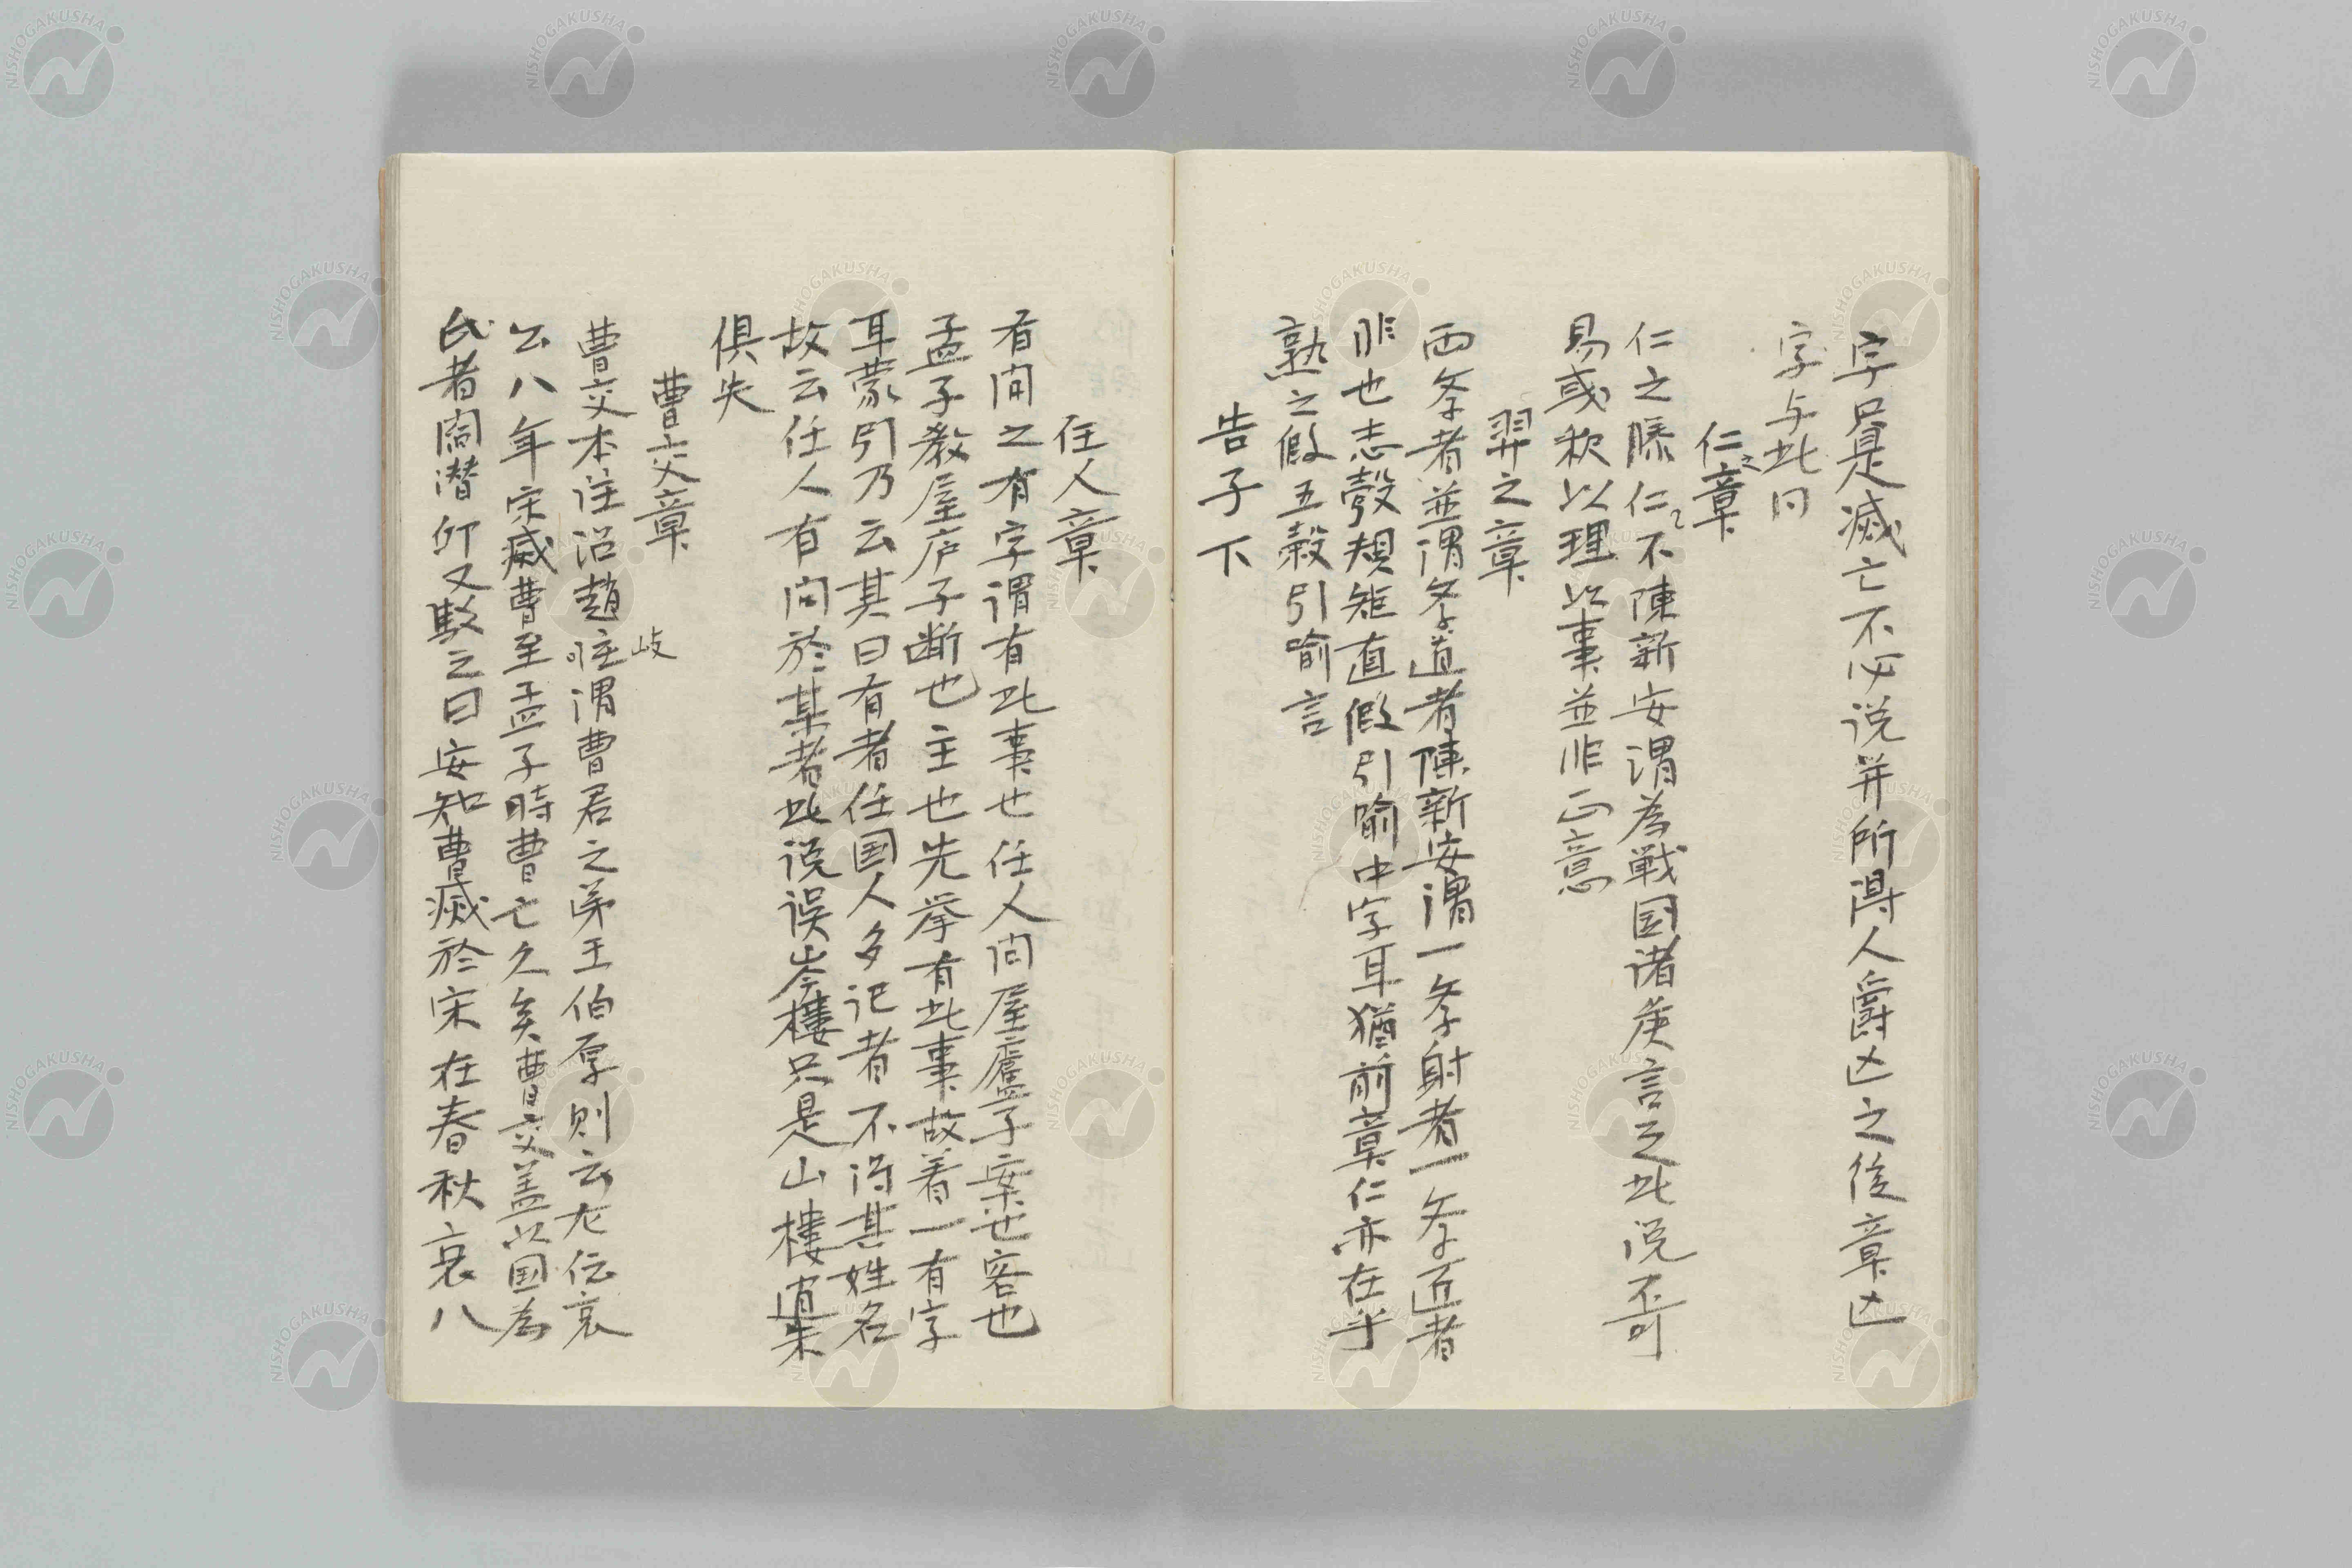 字只是滅亡不必说并所得人爵亡之後章亡
字与此同
仁之章
仁之勝仁〻不陳新安谓為戦国诸侯言之此说不可
易或称以理以事並非正意
羿之章
两学者並谓学道者陳新安谓一学射者一学匠者
非也志彀規矩直假引喻中字耳猶前章仁亦在乎
熟之假五穀引喻言
告子下
任人章
有问之有字谓有此事也任人问屋廬子案也客也
孟子教屋庐子断也主也先挙有此事故着一有字
耳蒙引乃云其曰有者任国人多记者不得其姓名
故云任人有问於某者此说误岑樓只是山樓道朱
俱失
曹交章
曹交本注沿趙岐注谓曹君之弟王伯厚则云左伝哀
公八年宋滅曹至孟子時曹亡久矣曹交盖以国為
氏者閻潜邱又駁之曰安知曹滅於宋在春秋哀八
NISHOGAKUSHA